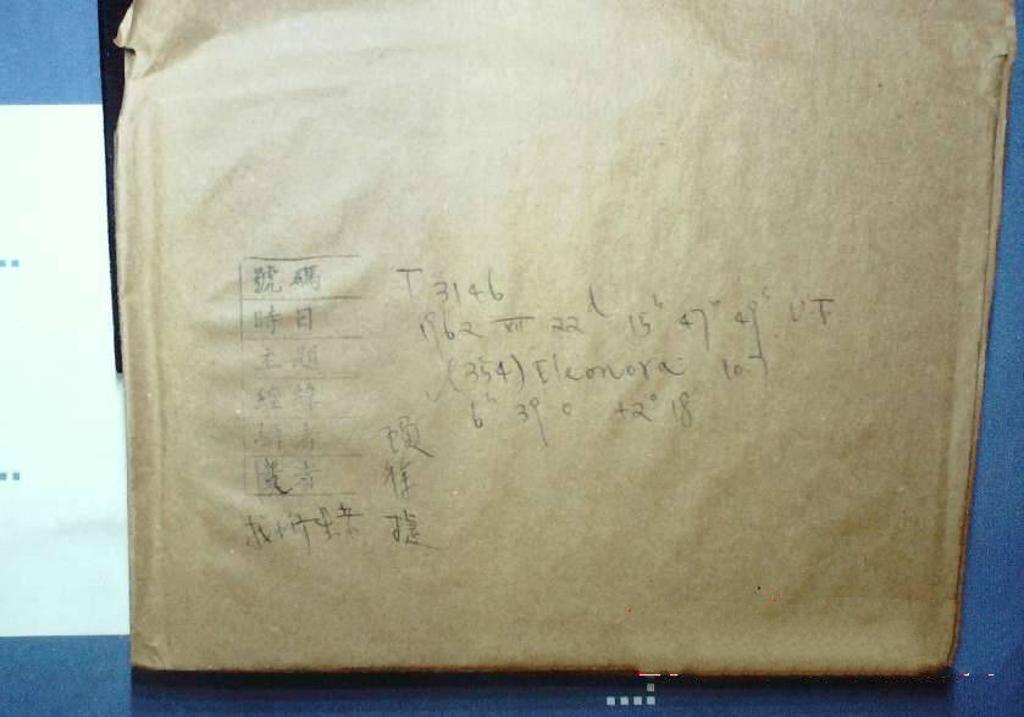 號碼 T 3146
時日 1962 XII 22ᵈ 15ʰ 47ᵐ 49ˢ UT
主題 (354) Eleonora 10.7
經緯 6ʰ 39.0 +2° 18
者
者 徐